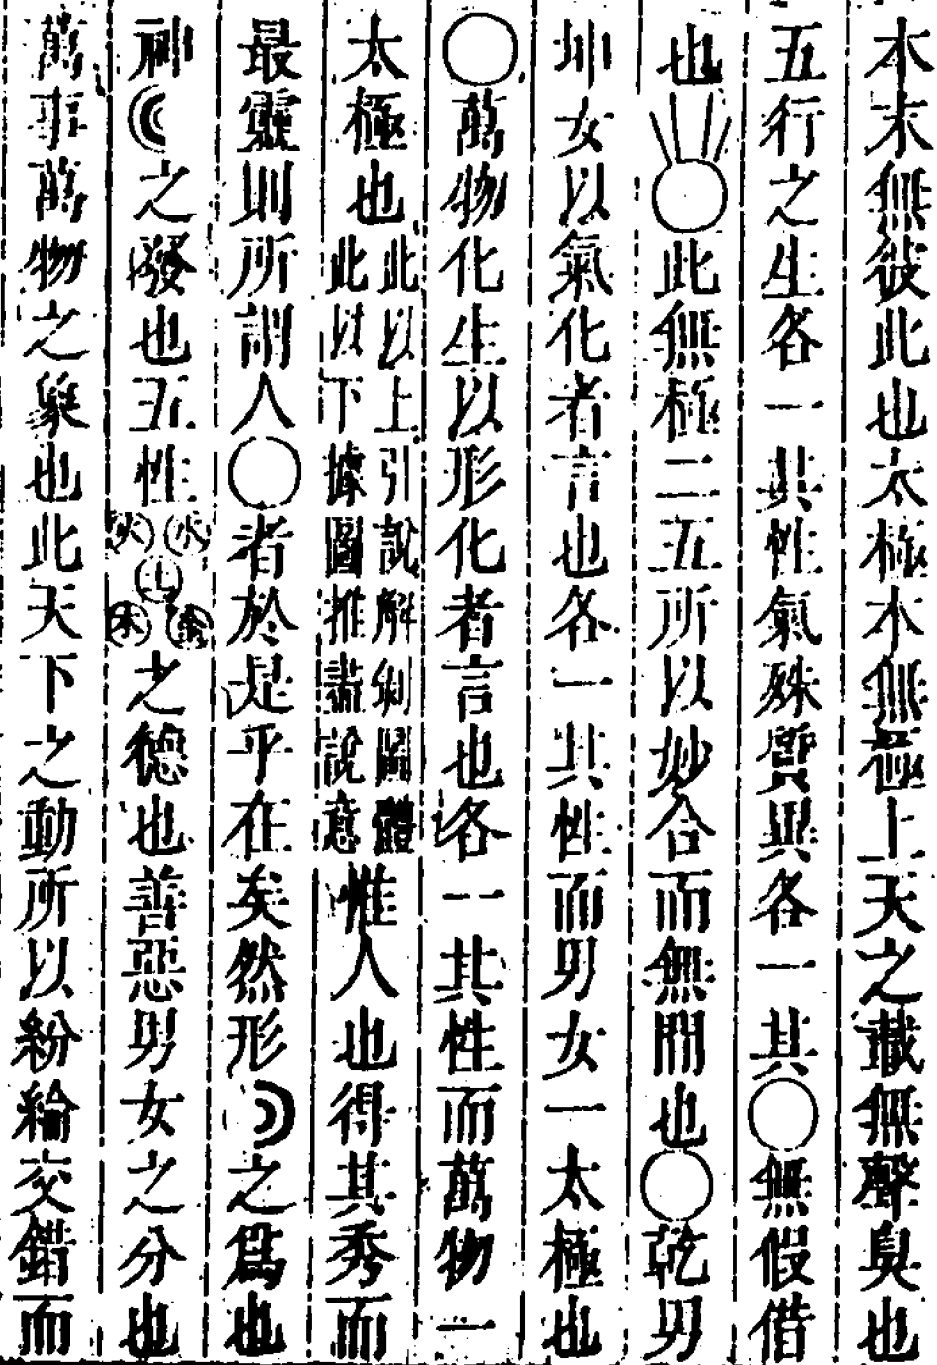 本末無彼此也太極本無極上天之載無聲臭也
五行之生各一其性氣殊質異各一其○無假借
也○此無極二五所以妙合而無間也○乾男
坤女以氣化者言也各一其性而男女一太極也
○萬物化生以形化者言也各一其性而萬物一
太極也此以上引說解剝圖體此以下據圖推盡說意惟人也得其秀而
最靈則所謂人○者於是乎在矣然形之爲也
神之發也五性水火土金木之德也善惡男女之分也
萬事萬物之象也此天下之動所以紛綸交錯而